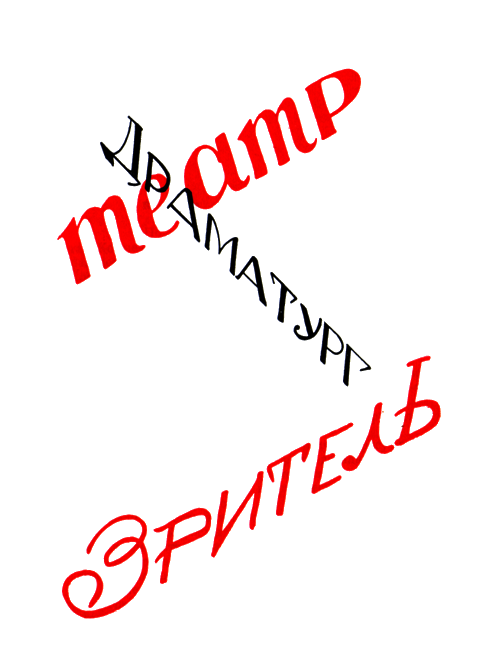 театр
ДРАМАТУРГ
ЗРИТЕЛЬ